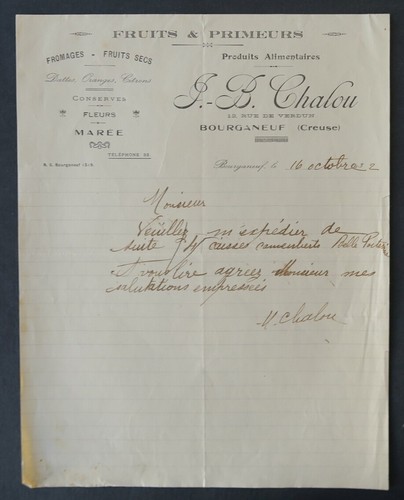 FRUITS & PRIMEURS
FROMAGES - FRUITS SECS
Dattes, Oranges, Citrons
CONSERVES
FLEURS
MARÉE
TÉLÉPHONE
R. C. Bourganeuf
Produits Alimentaires
J.-B. Chalou
12, RUE DE VERDUN
BOURGANEUF (Creuse)
Bourganeuf, le 16 octobre
Monsieur
Veuillez m'expédier de
suite caisses camemberts Belle
Et vouloire agréer Monsieur mes
salutations empressées
Chalou